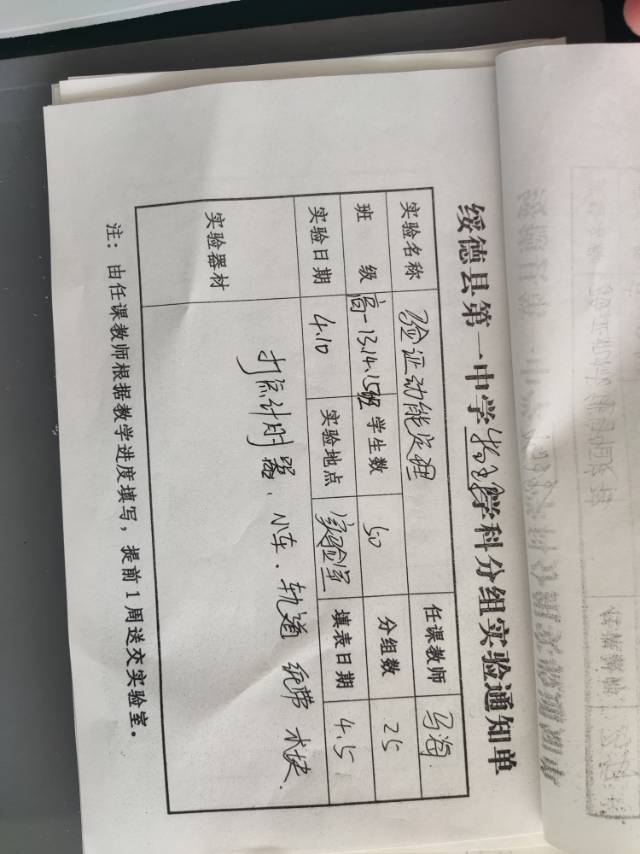 绥德县第一中学物理学科分组实验通知单
实验名称 验证动能定理 任课教师 马海
班 级 高一13.14.15班 学生数 50 分组数 25
实验日期 4.10 实验地点 实验室 填表日期 4.5
实验器材 打点计时器、小车、轨道 纸带 木块
注：由任课教师根据教学进度填写，提前1周送交实验室。